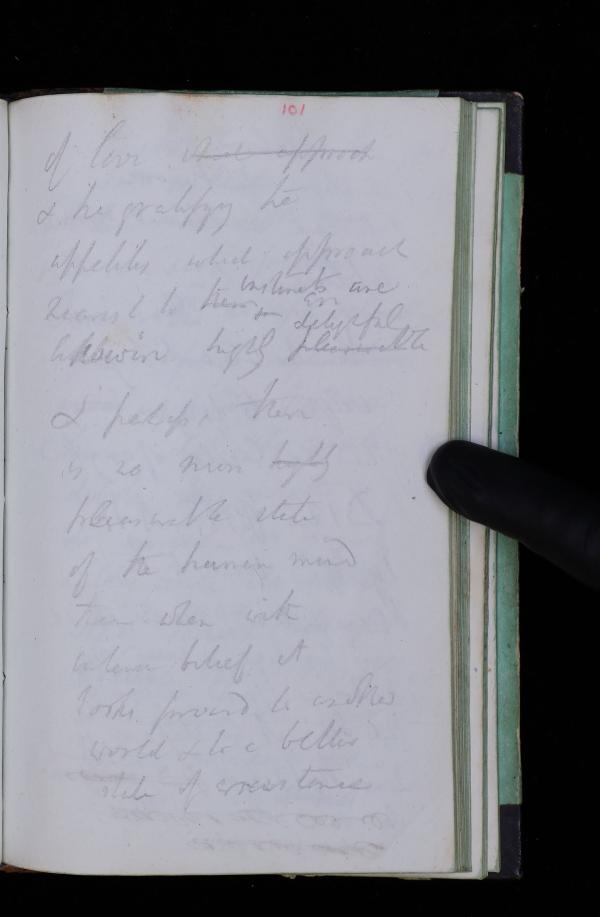 101
of love which approach
& the gratifyg the
appetites which approach
instincts are
nearest to them are
delightful
likewise highly pleasurable
& perhaps there
is no more highly
pleasurable state
of the human mind
than when with
intense belief it
looks forward to another
world & to a better
state of existence